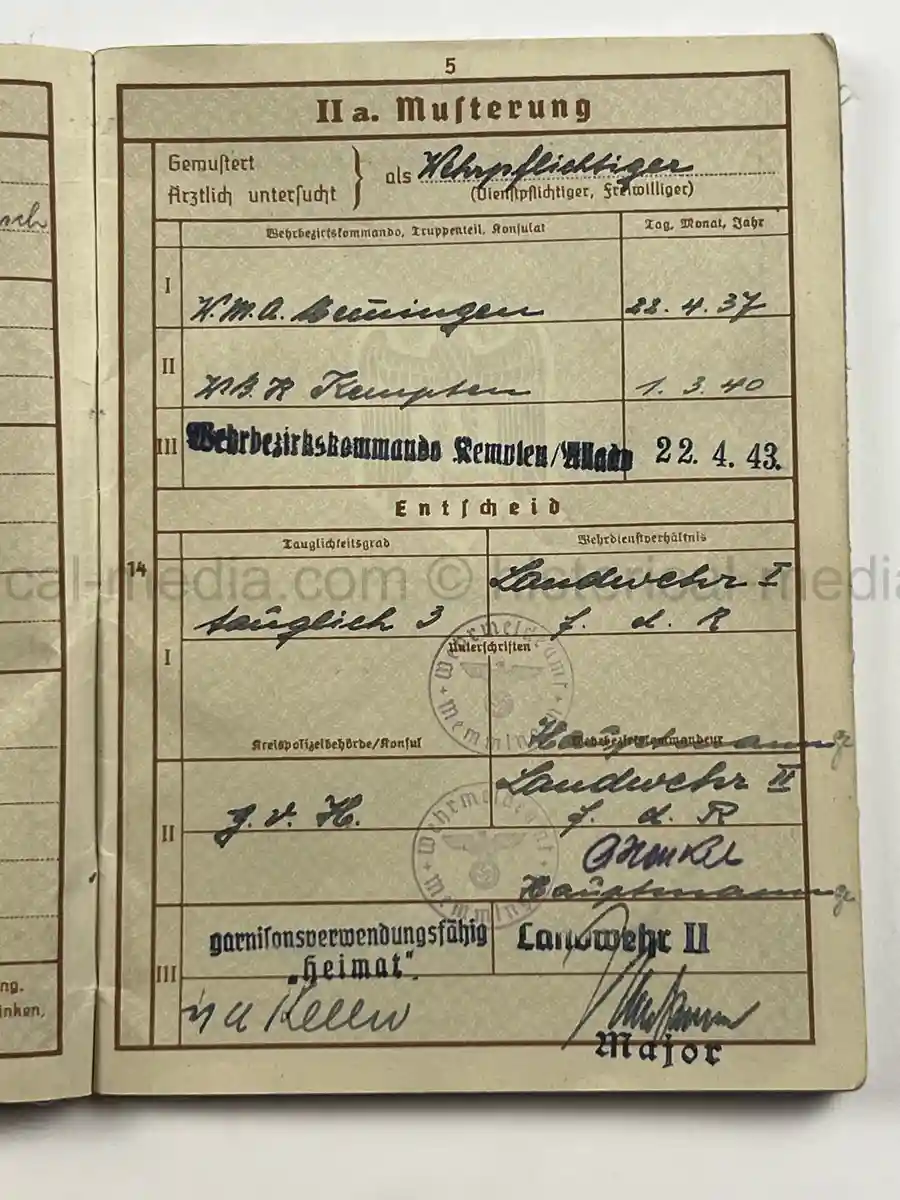 5
II a. Muſterung
Gemuſtert
Ärztlich unterſucht
als Wehrpflichtiger
(Dienſtpflichtiger, Freiwilliger)
Wehrbezirkskommando, Truppenteil, Konſulat
Tag, Monat, Jahr
I
W.M.A. Memmingen
22. 4. 37
II
W B K Kempten
1. 3. 40
III
Wehrbezirkskommando Kempten/Allgäu
22. 4. 43.
Entſcheid
Tauglichkeitsgrad
Wehrdienſtverhältnis
14
I
tauglich 3
Landwehr I
f. d. R
Unterſchriften
Wehrmeldeamt
Memmingen
Kreispolizeibehörde/Konſul
Wehrbezirkskommandeur
II
g. v. H.
Landwehr II
f. d. R
Wehrmeldeamt
Memmingen
Hauptmann
III
garniſonsverwendungsfähig
„Heimat".
Landwehr II
Major
sch
ng.
inken,
cal-media.com © historical-media